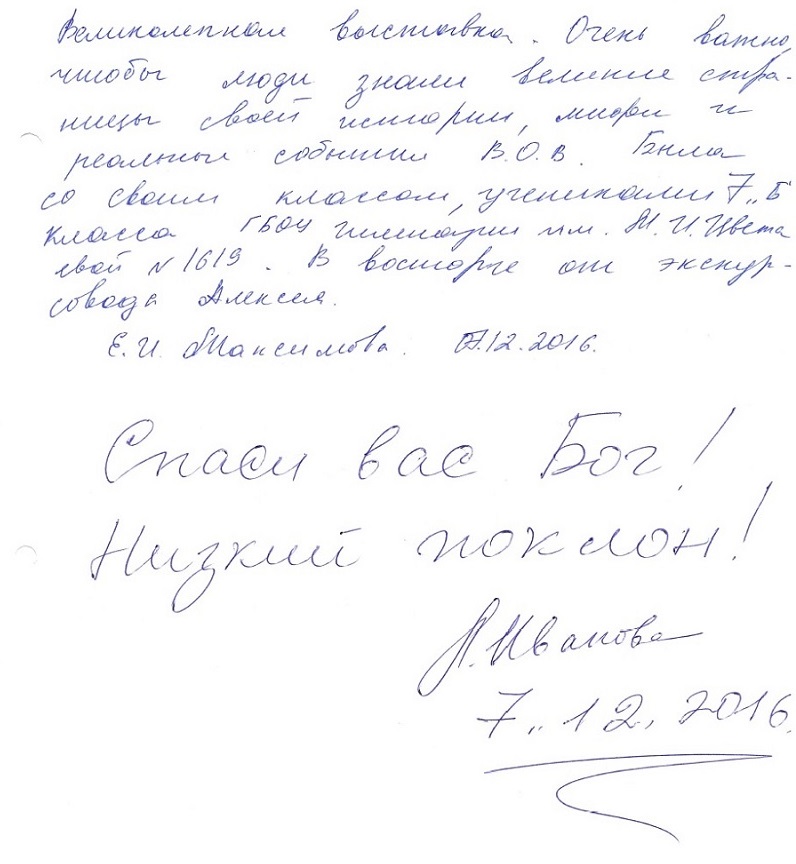 Великолепная выставка. Очень важно,
чтобы люди знали великие стра-
ницы своей истории, мифы и
реальные события В.О.В. Была
со своим классом, учениками 7 „Б"
класса ГБОУ гимназии им. М.И.Цвета
евой N 1619. В восторге от экскур-
совода Алексея.
Е.И. Максимова. 07.12.2016.
Спаси вас Бог!
Низкий поклон!
Иванова
7.. 12. 2016.